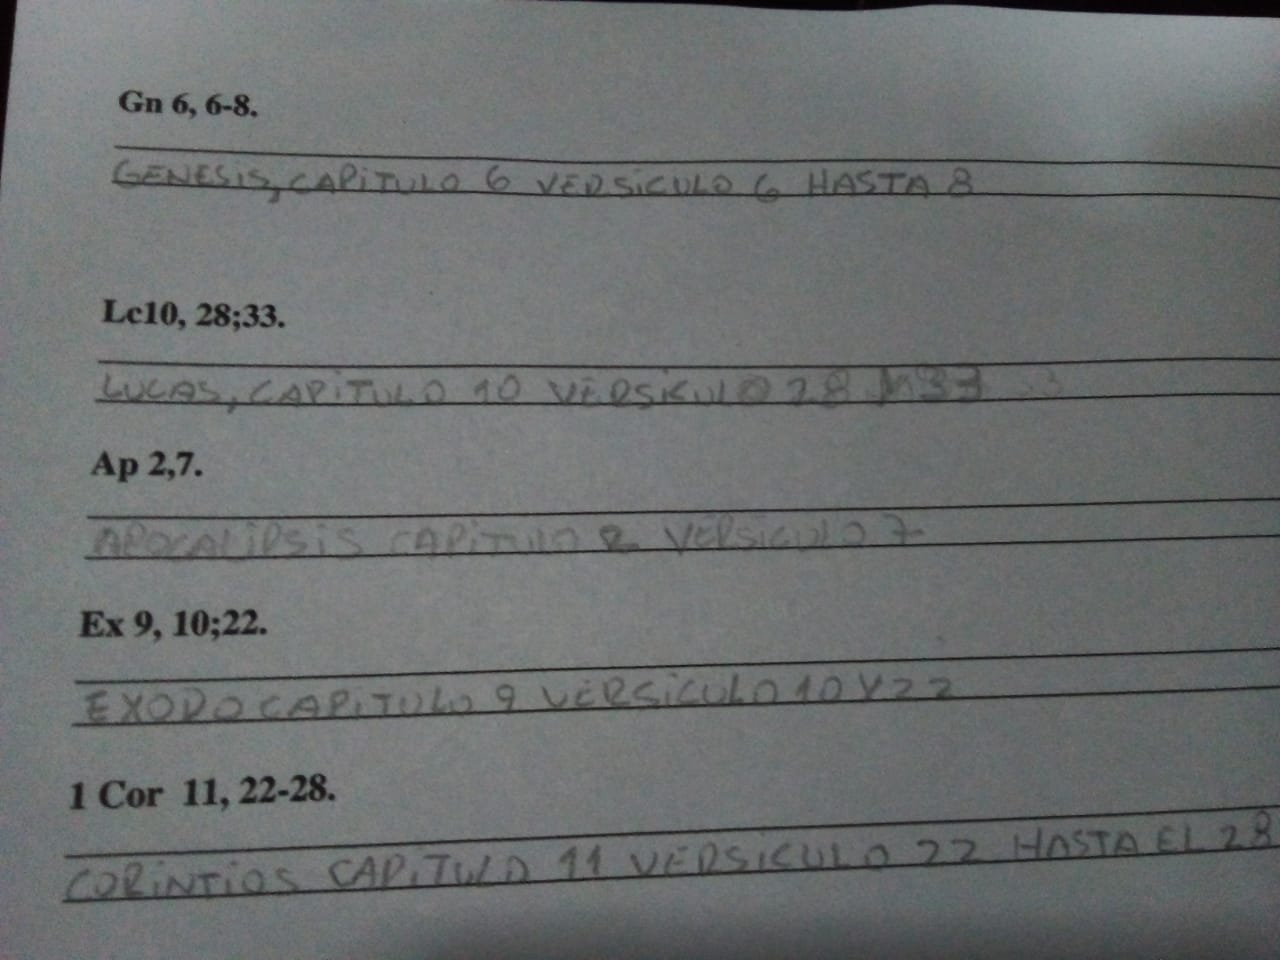 Gn 6, 6-8.
GENESIS, CAPITULO 6 VERSICULO 6 HASTA 8
Lc10, 28;33.
LUCAS, CAPITULO 10 VERSICULO 28 33
Ap 2,7.
APOCALIPSIS CAPITULO 2 VERSICULO 7
Ex 9, 10;22.
EXODO CAPITULO 9 VERSICULO 10 Y 22
1 Cor 11, 22-28.
CORINTIOS CAPITULO 11 VERSICULO 22 HASTA EL 28